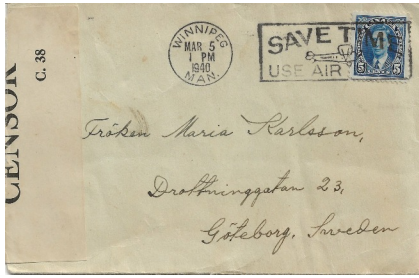 CENSOR
C. 38
WINNIPEG
MAR 5
1 PM
1940
MAN.
SAVE TIME
&
USE AIR
5 5
Fröken Maria Karlsson,
Drottninggatan 23,
Göteborg, Sweden